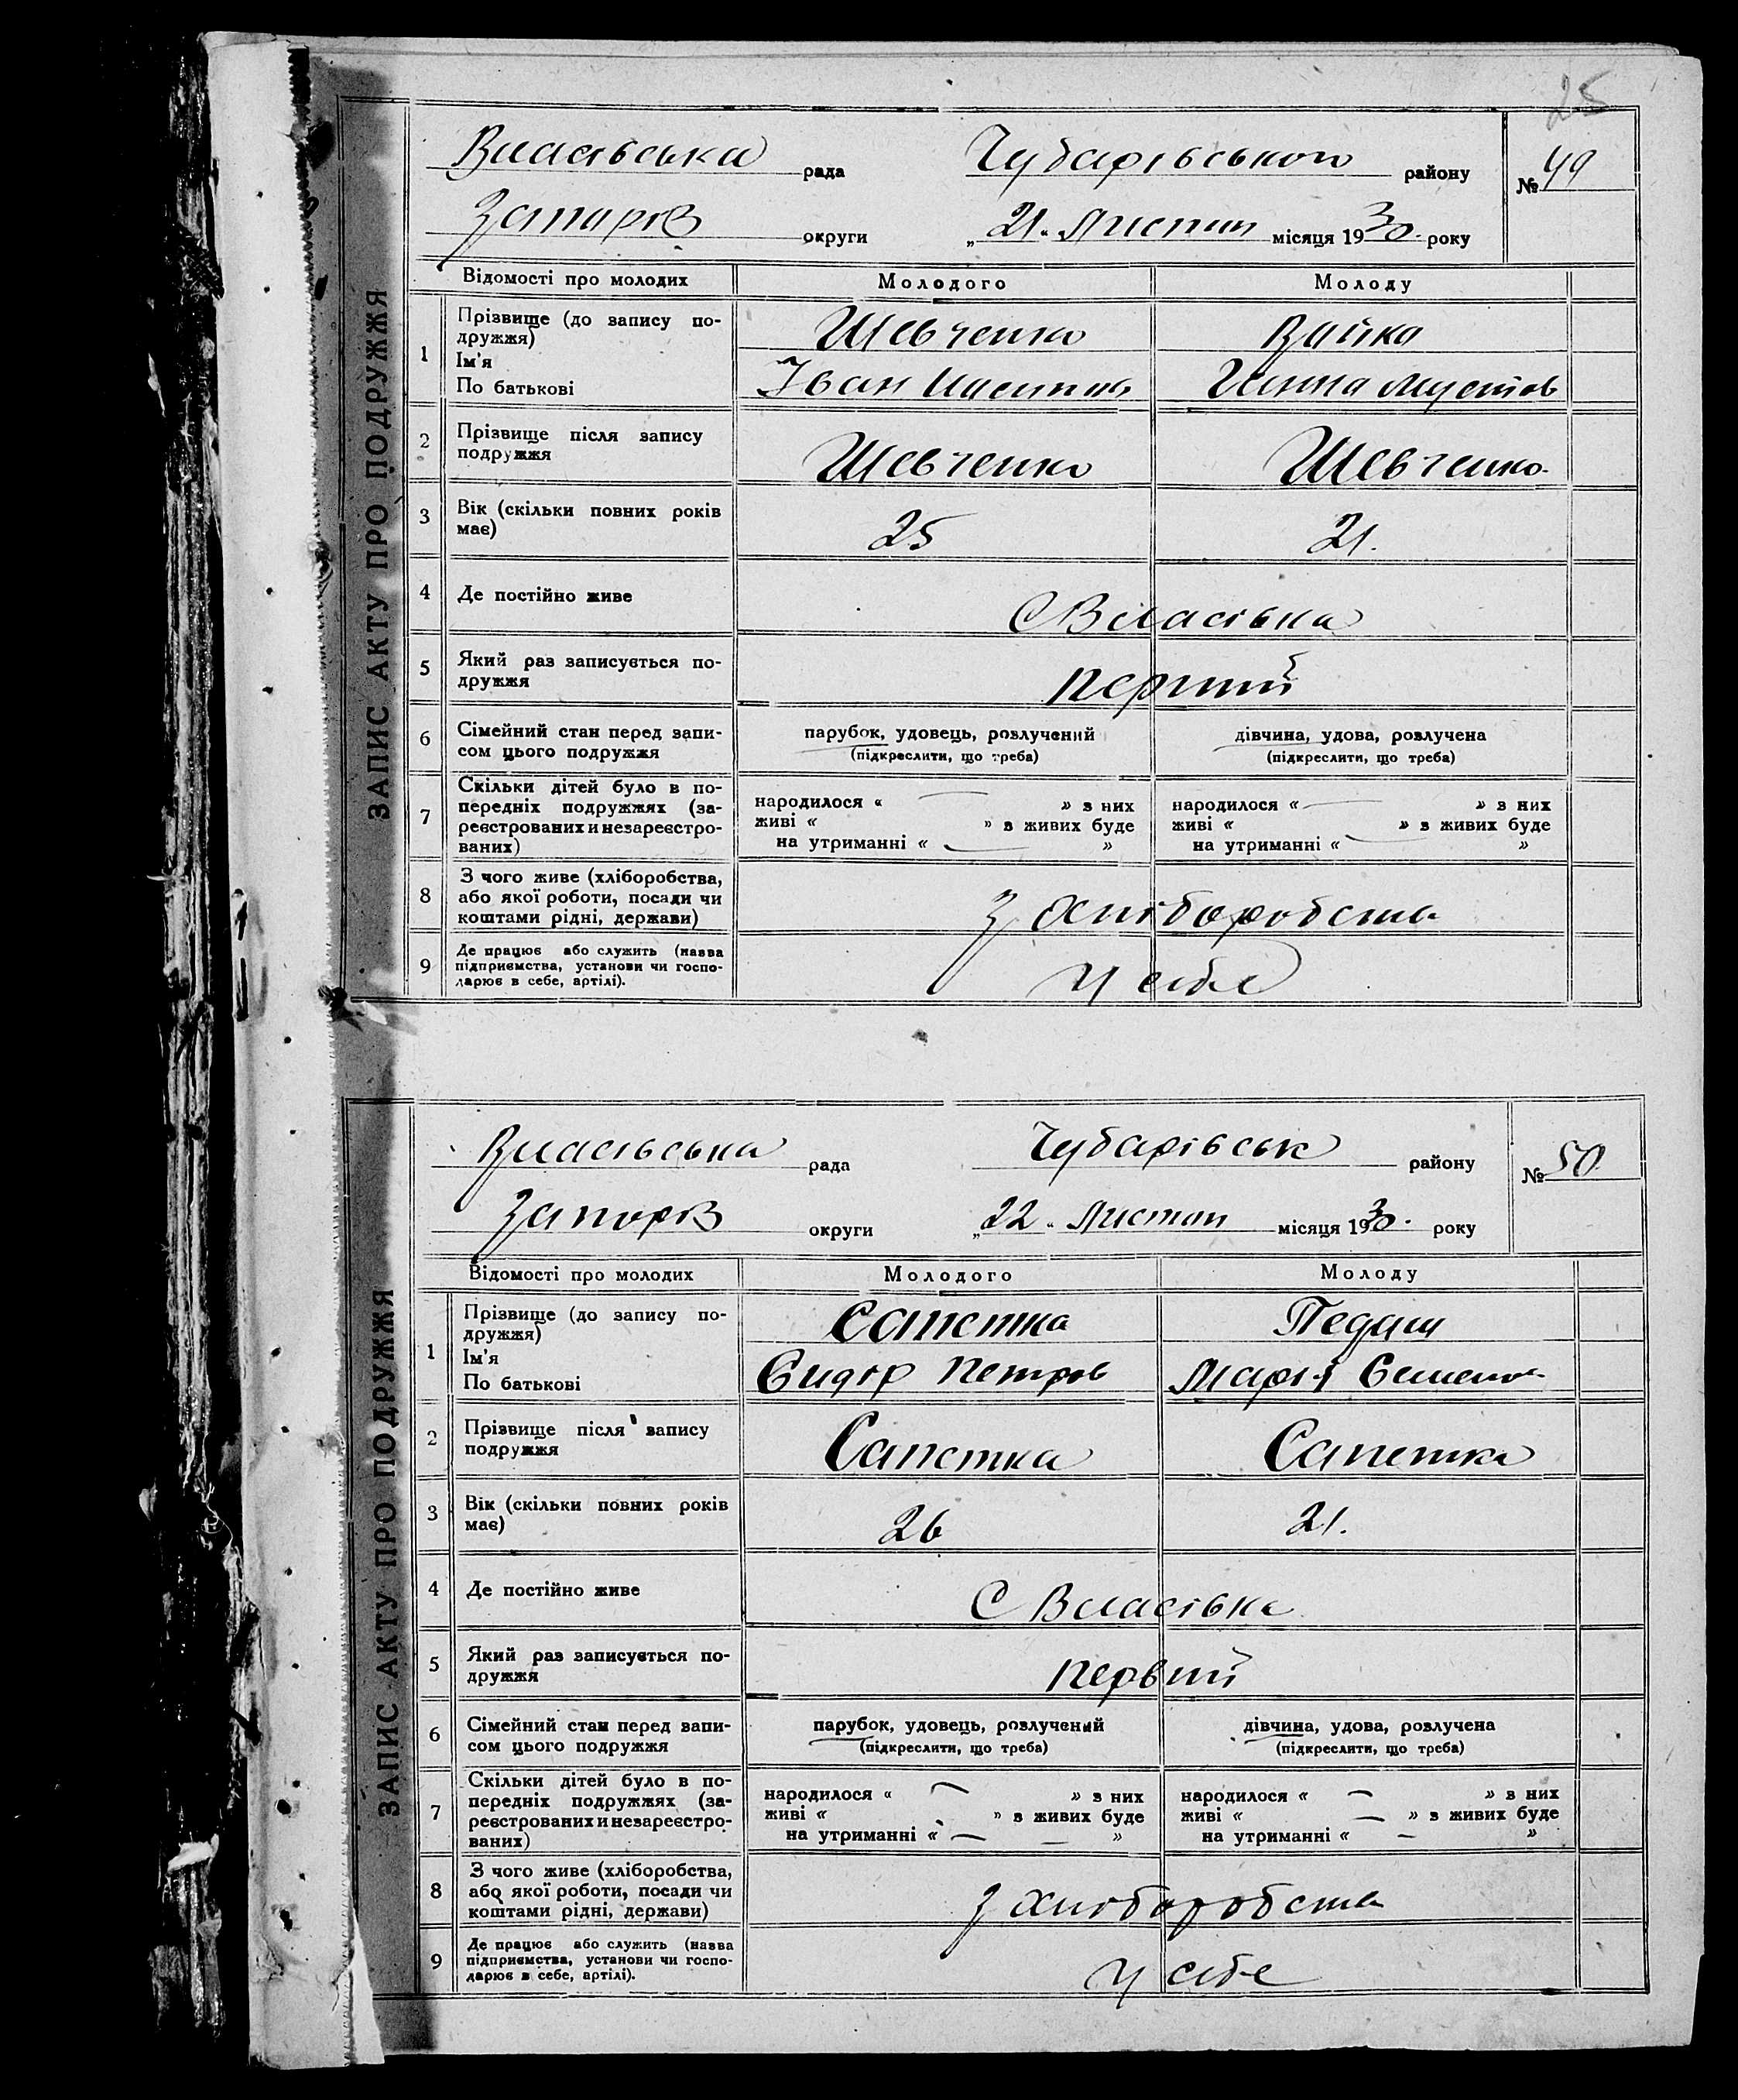 25
ЗАПИС АКТУ ПРО ПОДРУЖЖЯ
Власівська рада Чубарівського району № 49
Запоріз округи „21“ Листоп місяця 1930. року
Відомості про молодих Молодого Молоду
1 Прізвище (до запису по- Шевченко Вайко
дружжя)
Ім'я
По батькові Іван Ганна
2 Прізвище після запису
подружжя Шевченко Шевченко
3 Вік (скільки повних років
має) 25 21.
4 Де постійно живе С Власівка
5 Який раз записується по-
дружжя перший
6 Сімейний стан перед запи- парубок, удовець, розлучений дівчина, удова, розлучена
сом цього подружжя (підкреслити, що треба) (підкреслити, що треба)
7 Скільки дітей було в по-
передніх подружжях (за- народилося « » з них народилося « » з них
реєстрованих и незареєстро- живі « » з живих буде живі « » з живих буде
ваних) на утриманні « » на утриманні « »
8 З чого живе (хліборобства,
або якої роботи, посади чи
коштами рідні, держави) З хліборобства
9 Де працює або служить (назва
підприємства, установи чи госпо-
дарює в себе, артілі). у себе
ЗАПИС АКТУ ПРО ПОДРУЖЖЯ
Власівська рада Чубарівськ району № 50
Запоріз округи „22“ Листоп місяця 1930. року
Відомості про молодих Молодого Молоду
1 Прізвище (до запису по- Сапетка Педаш
дружжя)
Ім'я
По батькові Сидір Петров Марія Семенов
2 Прізвище після запису
подружжя Сапетка Сапетка
3 Вік (скільки повних років
має) 26 21.
4 Де постійно живе С Власівка
5 Який раз записується по-
дружжя первий
6 Сімейний стан перед запи- парубок, удовець, розлучений дівчина, удова, розлучена
сом цього подружжя (підкреслити, що треба) (підкреслити, що треба)
7 Скільки дітей було в по-
передніх подружжях (за- народилося « » з них народилося « » з них
реєстрованих и незареєстро- живі « » з живих буде живі « » з живих буде
ваних) на утриманні « » на утриманні « »
8 З чого живе (хліборобства,
або якої роботи, посади чи
коштами рідні, держави) З хліборобства
9 Де працює або служить (назва
підприємства, установи чи госпо-
дарює в себе, артілі). у себе